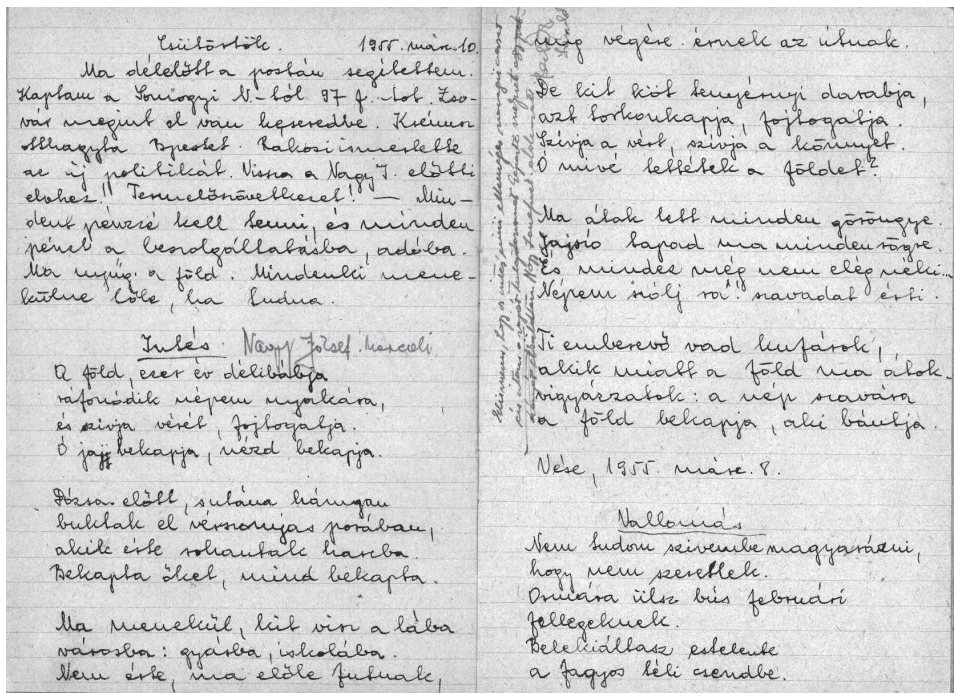 Csütörtök. 1955. márc. 10.
Ma délelőtt a postán segítettem.
Kaptam a Somogyi N.-tól 97 f.-tot. Zso-
vár megint el van keseredve. Krémer
otthagyta Bpestet. Rákosi ismertette
az új politikát. Vissza a Nagy I. előtti
elvhez!! Termelőszövetkezet! — Min-
dent pénzzé kell tenni, és minden
pénzt a beszolgáltatásba, adóba.
Ma nyűg a föld. Mindenki mene-
külne tőle, ha tudna.
Intés Nagy József Marcali
A föld, ezer év délibábja
ráfonódik népem nyakára,
és szívja vérét, fojtogatja.
Ó jajj bekapja, nézd bekapja.
Dózsa előtt, s utána hányan
buktak el vérszomjas porában,
akik érte rohantak harcba.
Bekapta őket, mind bekapta.
Ma menekül, kit visz a lába
városba: gyárba, iskolába.
Nem érte, ma előle futnak,
míg végére érnek az útnak.
De kit köt tenyérnyi darabja,
azt torkonkapja, fojtogatja.
Szívja a vért, szívja a könnyet.
Ó mivé tettétek a földet?
Ma átok lett minden göröngye.
Jajszó tapad ma minden rögre.
És mindez még nem elég néki...
Népem szólj rá!! szavadat érti.
Ti emberevő vad kufárok,
akik miatt a föld ma átok-
vigyázzatok: a nép szavára
a föld bekapja, aki bántja.
Vése, 1955. márc. 8.
Vallomás
Nem tudom szívembe magyarázni,
hogy nem szeretlek.
Ormára ülsz bús februári
fellegeknek.
Belekiáltasz estelente
a fagyos téli csendbe.